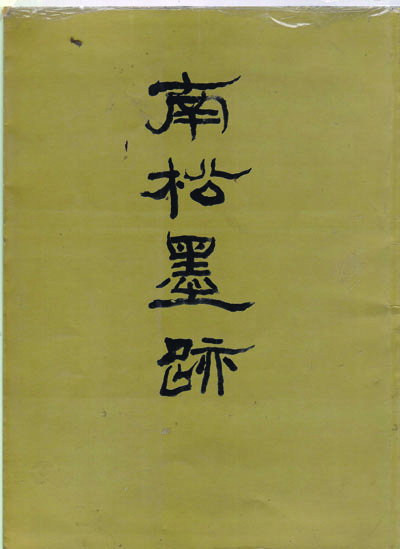 南松墨跡